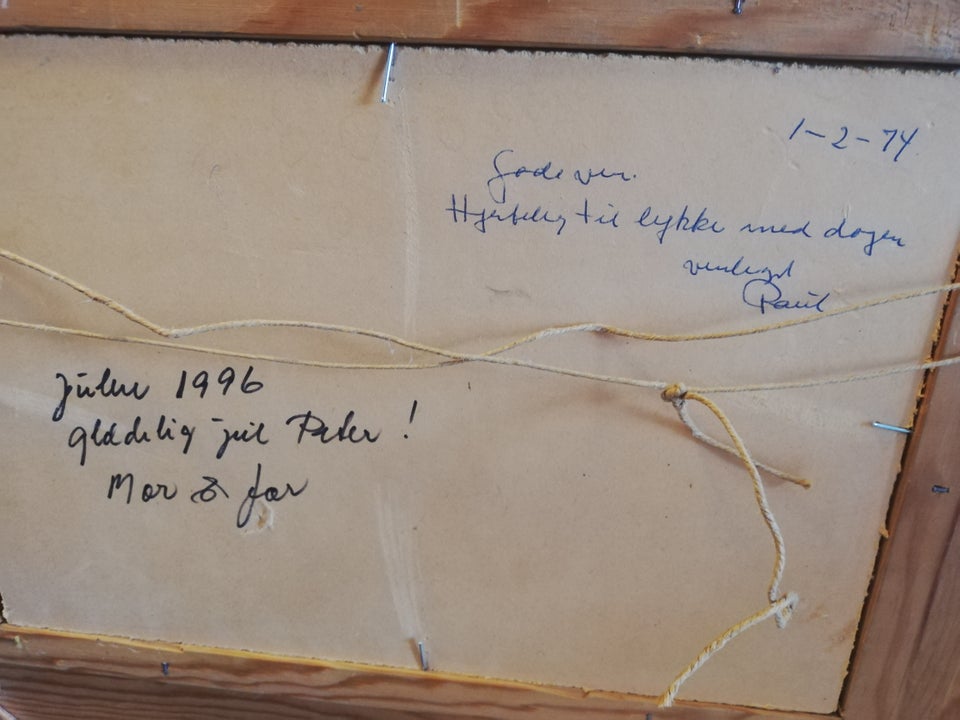 1-2-74
Gode ven.
Hjertelig til lykke med dagen
venligst
Poul
julen 1996
glædelig jul Peter!
Mor & far